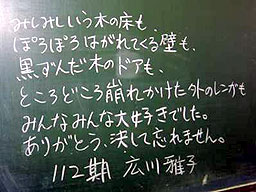 みしみしいう木の床も、
ぽろぽろはがれてくる壁も、
黒ずんだ木のドアも、
ところどころ崩れかけた外のレンガも
みんなみんな大好きでした。
ありがとう、決して忘れません。
112期 広川雅子